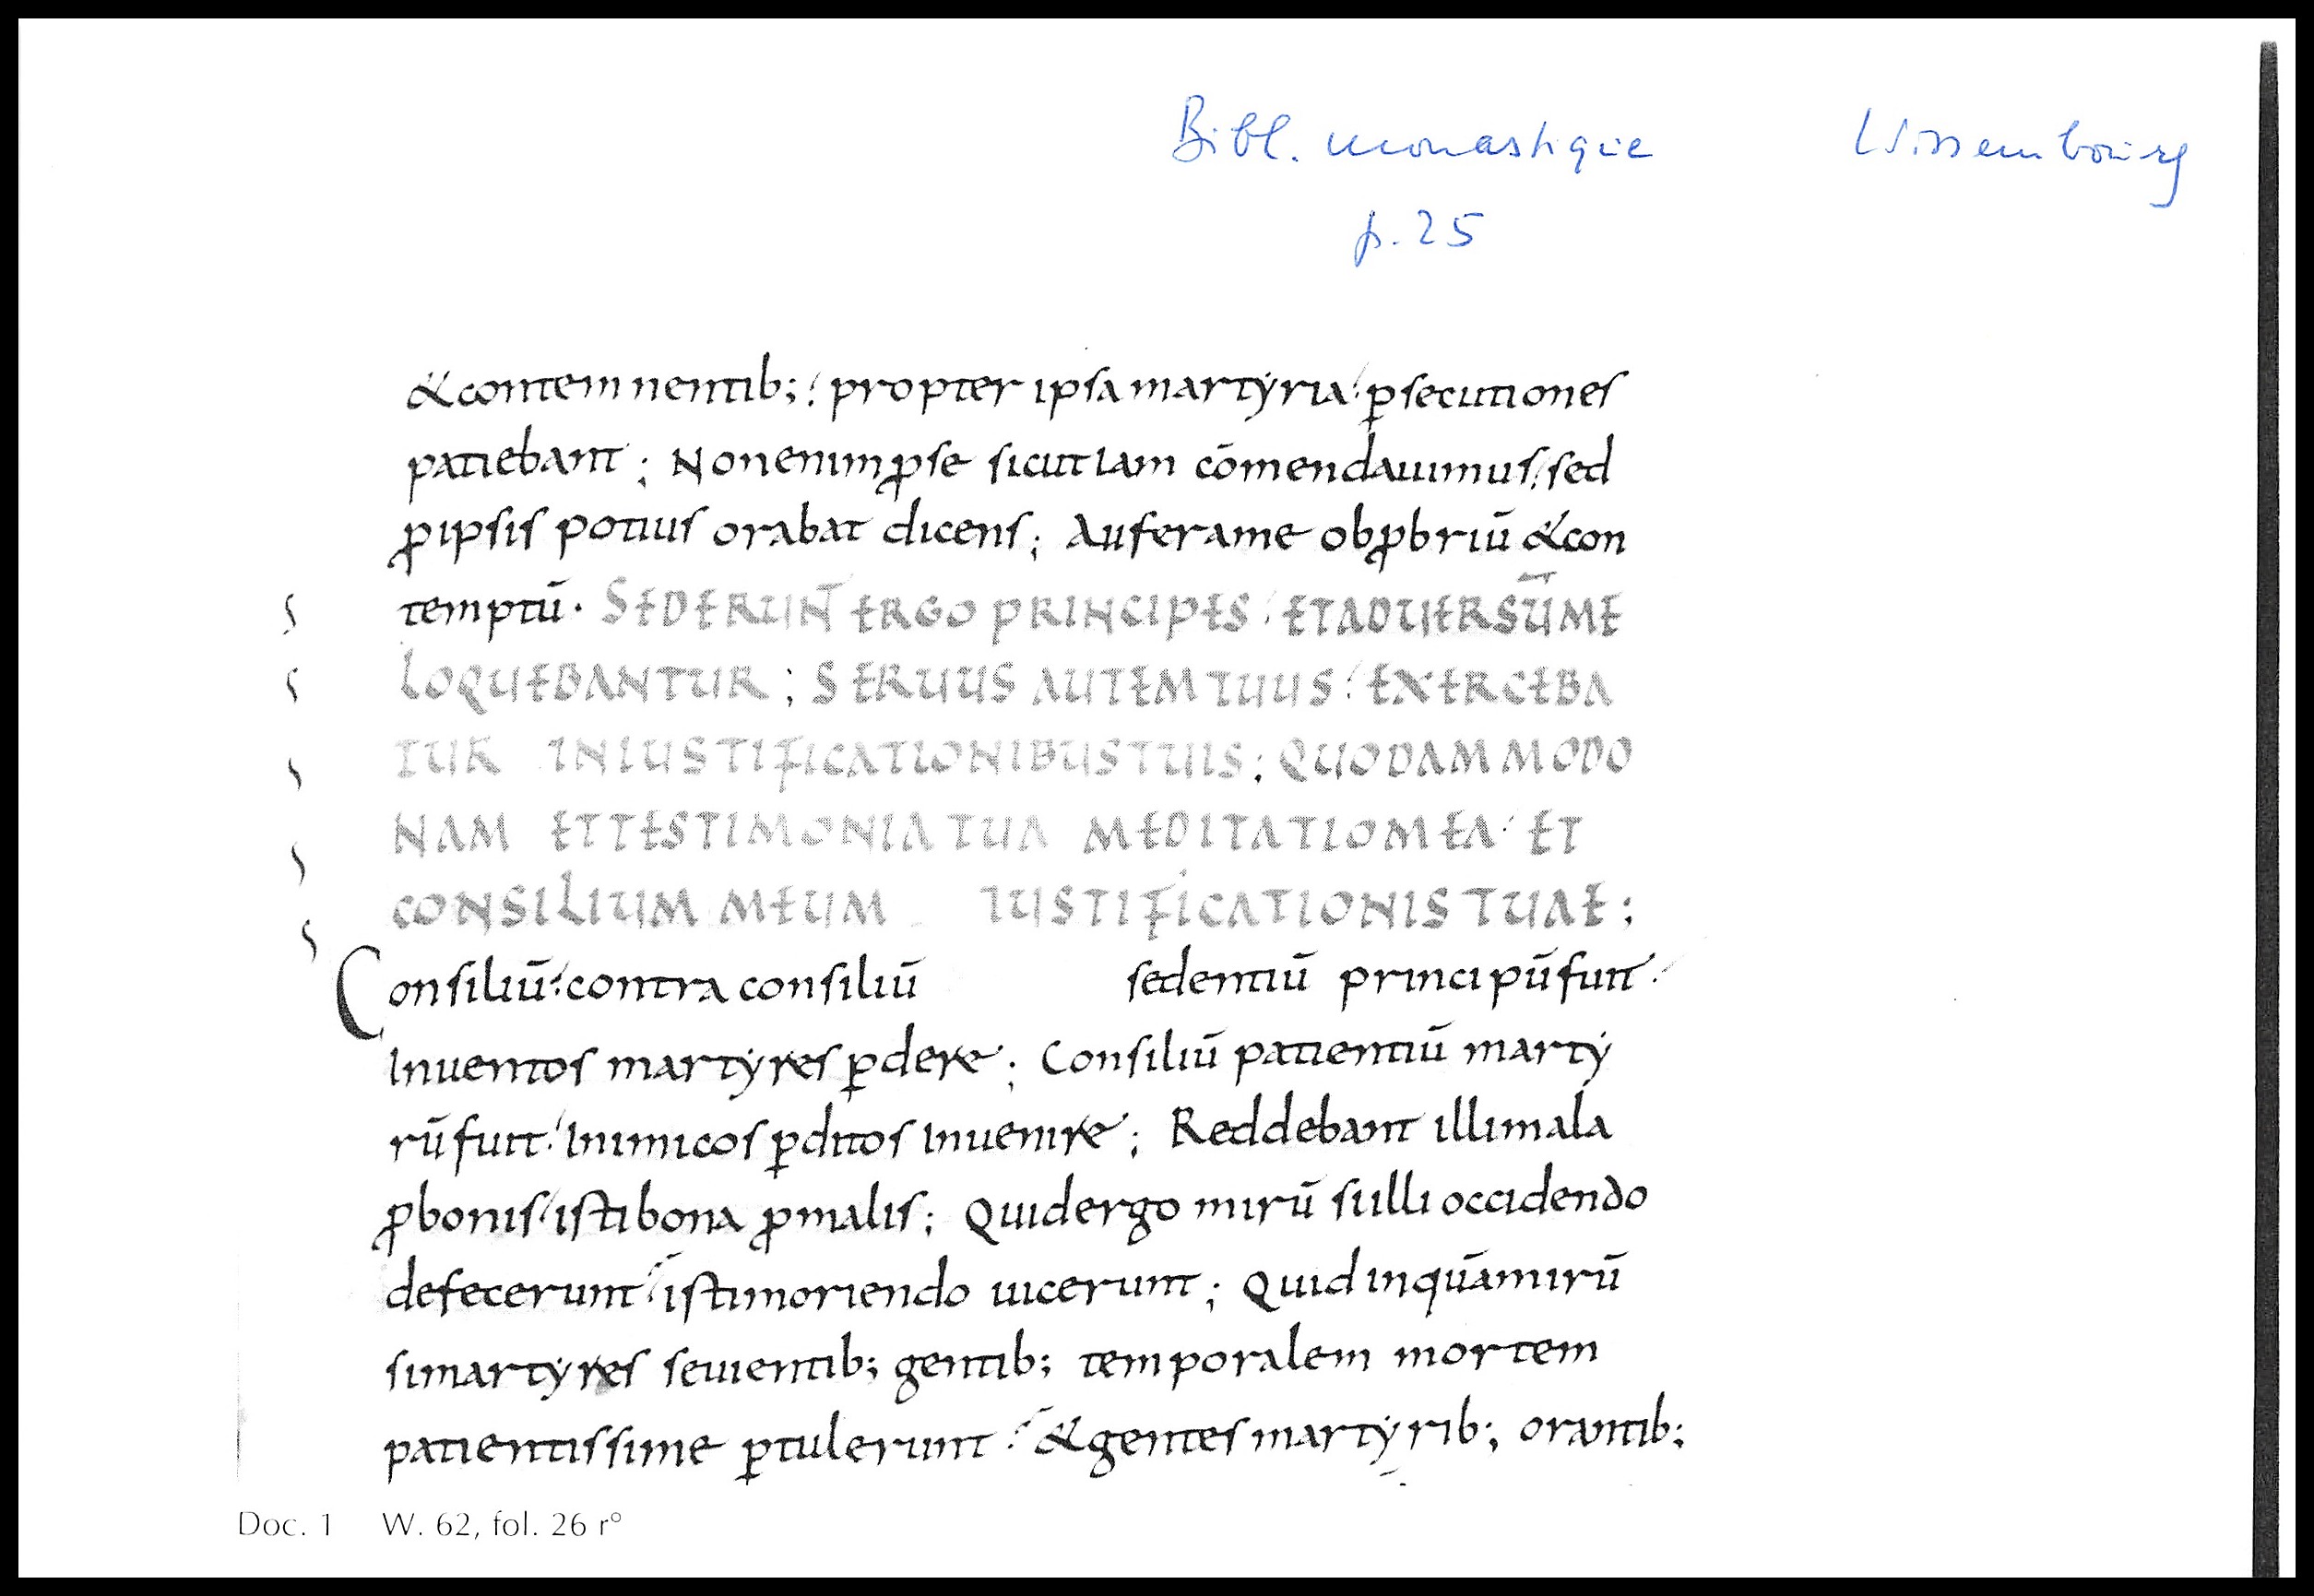 Bibl. monastique Wissembourg
p. 25
&contemnentib; propter ipsa martẏria ꝑsecutiones
patiebant; Nonenimꝓse sicutiam cōmendauimus sed
ꝓipsis potius orabat dicens; Auferame obꝓbriū &con
temptū. SEDERUNT ERGO PRINCIPES ETADUERSŪME
LOQUEBANTUR; SERUUS AUTEM TUUS EXERCEBA
TUR INIUSTIFICATIONIBUSTUIS; QUODAMMODO
NAM ETTESTIMONIA TUA MEDITATIOMEA ET
CONSILIUM MEUM IUSTIFICATIONIS TUAE;
Consiliū contra consiliū sedentiū principūfuit
Inuentos martẏres ꝑdere; Consiliū patientiū martẏ
rūfuit Inimicos ꝑditos Inuenire; Reddebant illimala
ꝓbonis istibona ꝓmalis; Quidergo mirū siilli occidendo
defecerunt istimoriendo uicerunt; Quid inquāmirū
simartẏres seuientib; gentib; temporalem mortem
patientissime ꝑtulerunt &gentesmartẏrib; orantib;
Doc. 1 W. 62, fol. 26 r°